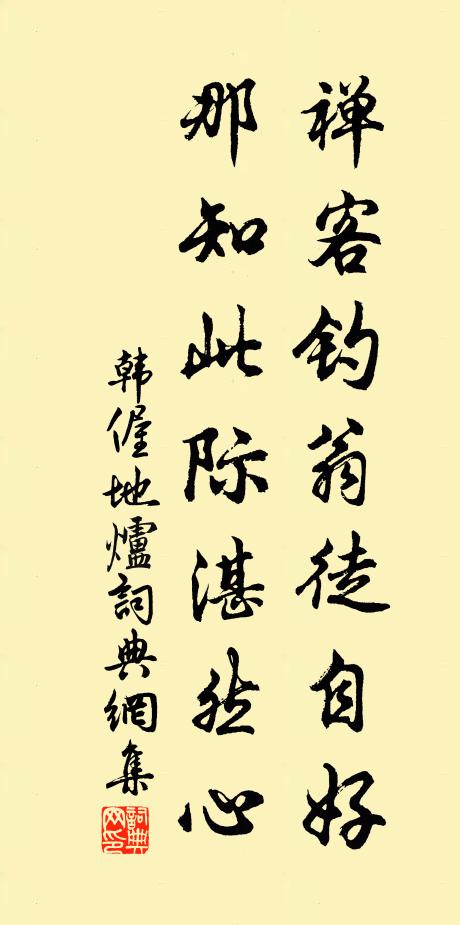 禅客钓翁徒自好
那知此际湛然心
韩偓地爐詞典網集
詞典网印